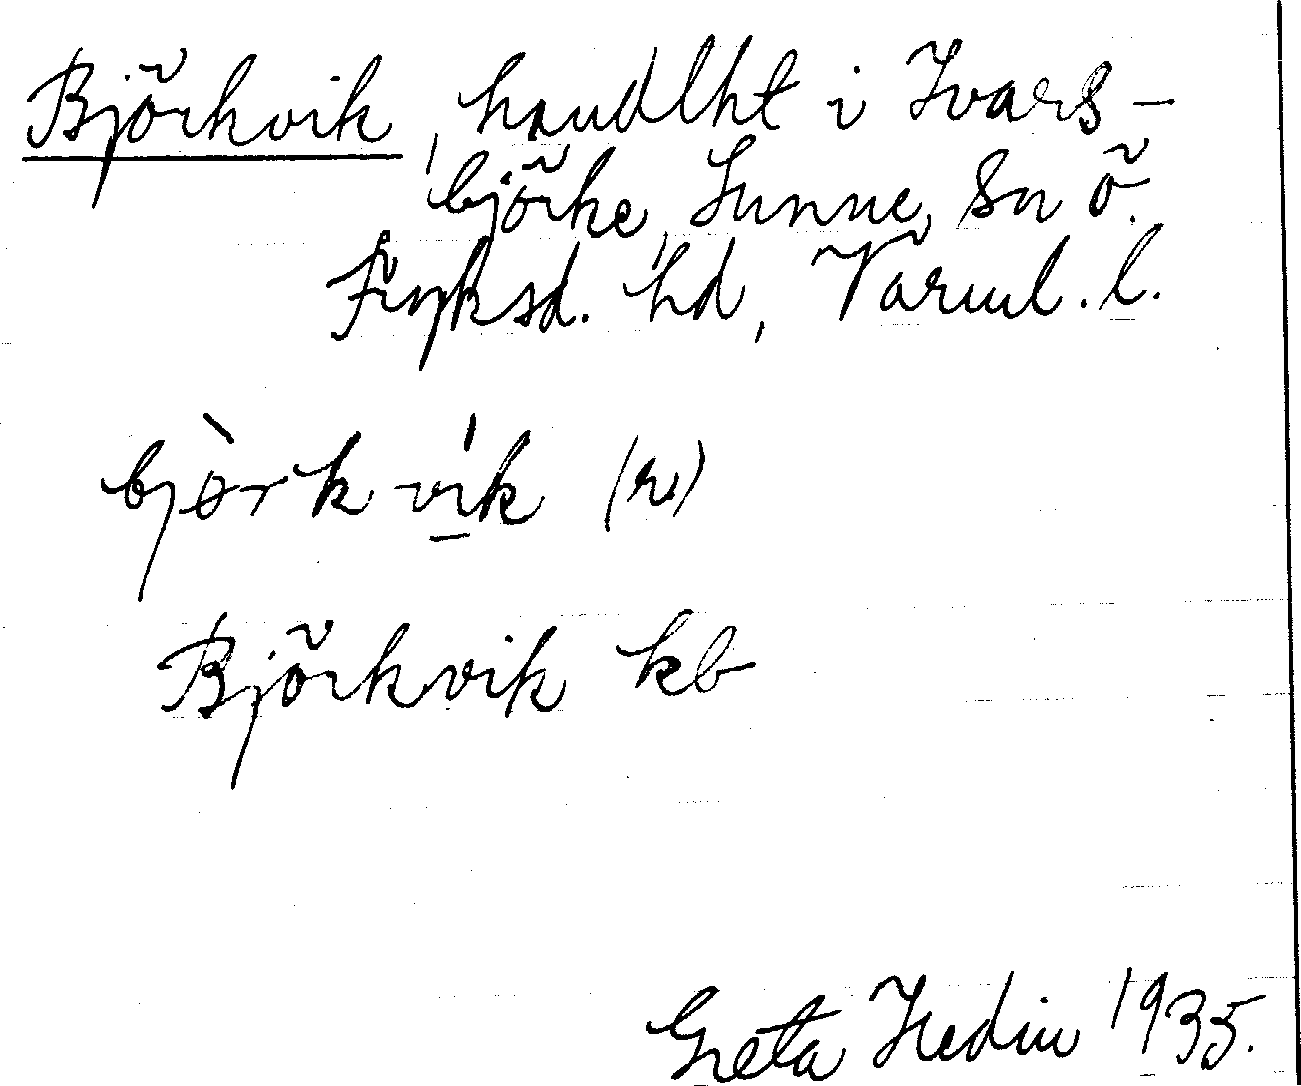 Björkvik, handlht i Ivars-
björke, Sunne, Sn Ö.
Fryksd. hd, Värml. l.
bjòrkvík (r)
Björkvik kb
Greta Hedin 1935.